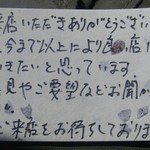 来店いただきありがとうござい
今まで以上により良 店
いきたいと思っています
見やご要望などお聞か
ご来店をお待ちしておりま